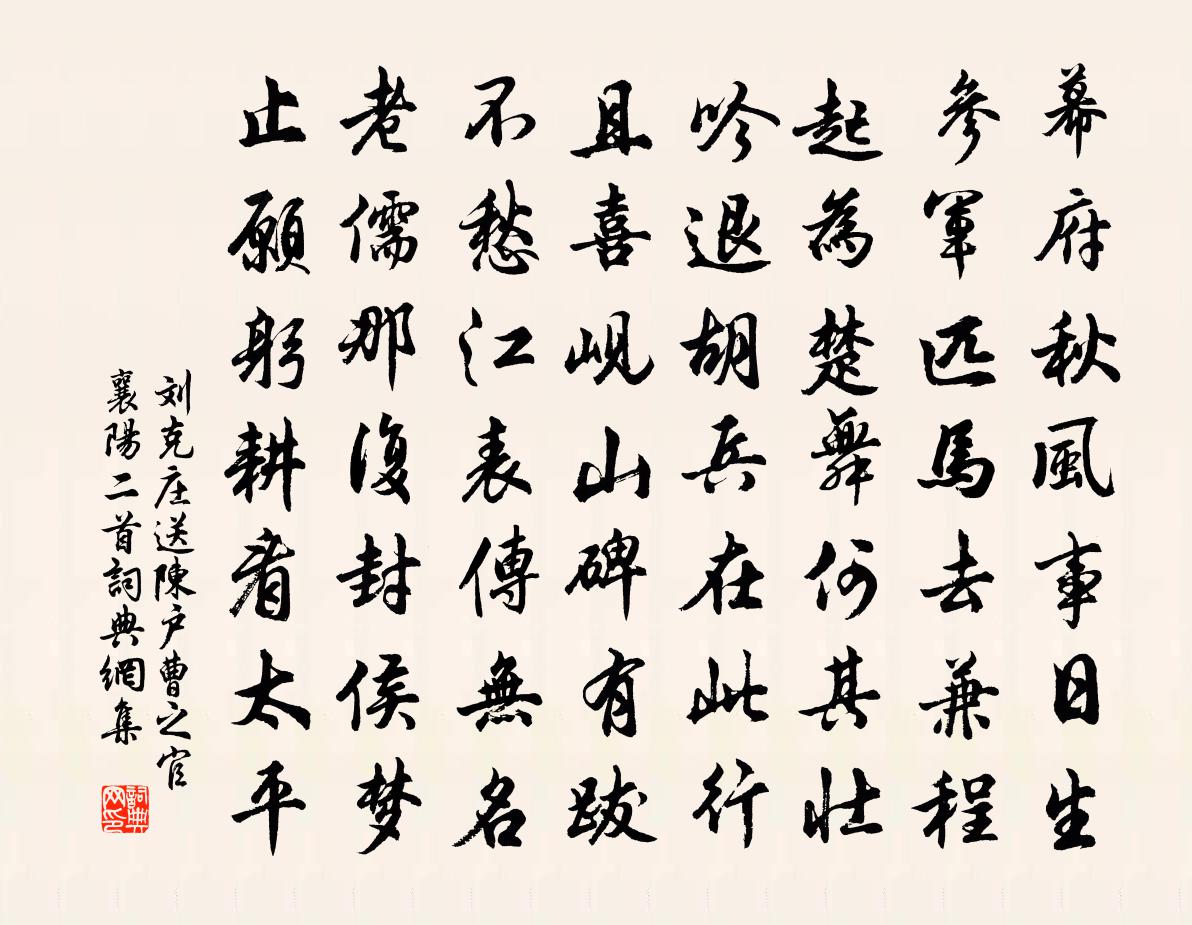 幕府秋風事日生
參軍匹馬去兼程
起為楚舞何其壮
吟退胡兵在此行
且喜峴山碑有跋
不愁江表傳無名
老儒那復封侯梦
止願躬耕看太平
刘克庄送陳户曹之官
襄陽二首詞典網集
詞典
网印